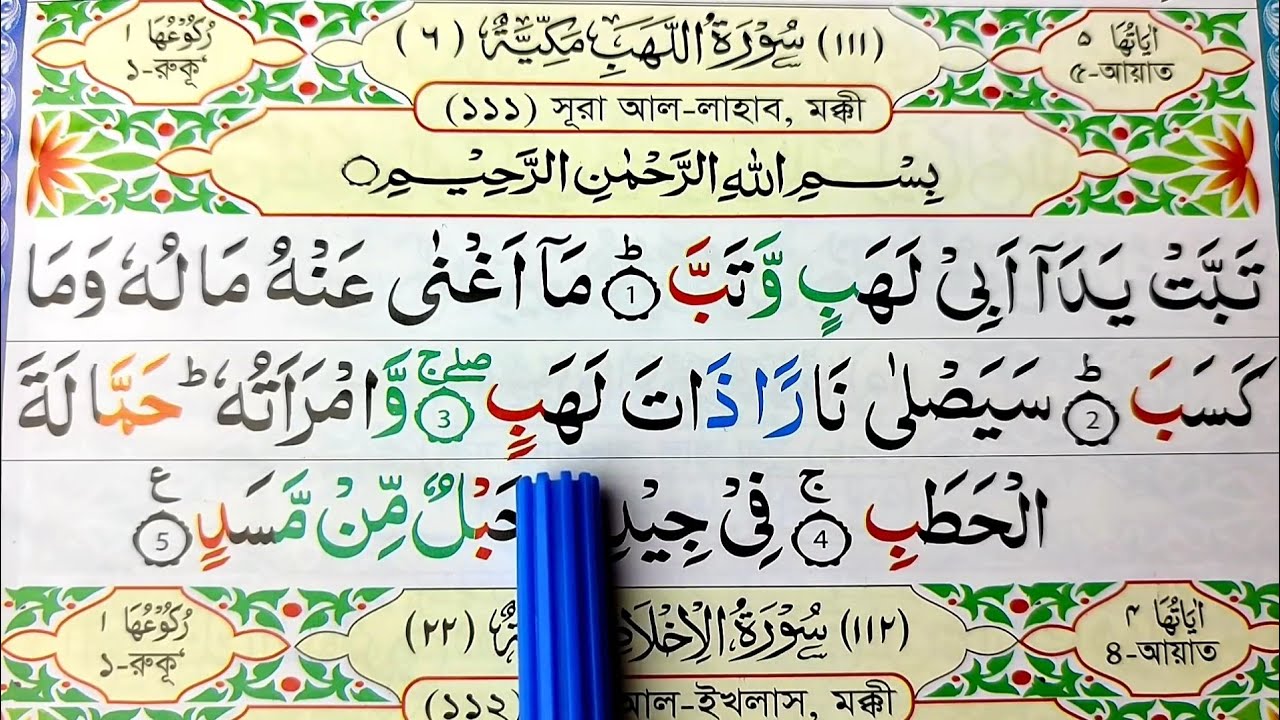 اٰيَاتُهَا ٥
৫-আয়াত
(١١١) سُوْرَةُ اللَّهَبِ مَكِّيَّةٌ (٦)
رُكُوْعُهَا ١
১-রুকূ‘
(১১১) সূরা আল-লাহাব, মক্কী
بِسْمِ اللهِ الرَّحْمٰنِ الرَّحِيْمِ
تَبَّتْ يَدَآ اَبِىْ لَهَبٍ وَّتَبَّ ؕ 1 مَآ اَغْنٰى عَنْهُ مَالُهٗ وَمَا
كَسَبَ ؕ 2 سَيَصْلٰى نَارًا ذَاتَ لَهَبٍ صلے ج 3 وَّامْرَاَتُهٗ ؕ حَمَّالَةَ
الْحَطَبِ ج 4 فِىْ جِيْدِ حَبْلٌ مِّنْ مَّسَدٍ ع 5
اٰيَاتُهَا ٤
৪-আয়াত
(١١٢) سُوْرَةُ الْاِخْلَا (٢٢)
رُكُوْعُهَا ١
১-রুকূ‘
(১১২) আল-ইখলাস, মক্কী